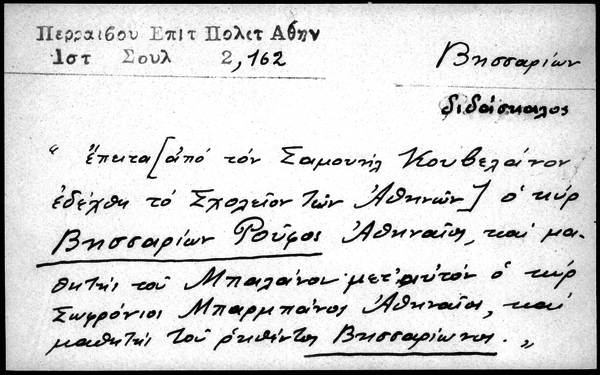 Περραιβου Επιτ Πολιτ Αθην
1στ Σουλ 2,162
Βησσαρίων
διδάσκαλος
" ἔπειτα [ἀπό τόν Σαμουήλ Κουβελάνον
ἐδέχθη τό Σχολεῖον τῶν Ἀθηνῶν] ὁ κύρ
Βησσαρίων Ροῦφος Ἀθηναῖος, καί μα-
θητής τοῦ Μπαλάνου μετ' αὐτόν ὁ κύρ
Σωφρόνιος Μπαρμπάνος Ἀθηναῖος, καί
μαθητής τοῦ ῥηθέντος Βησσαρίωνος. „